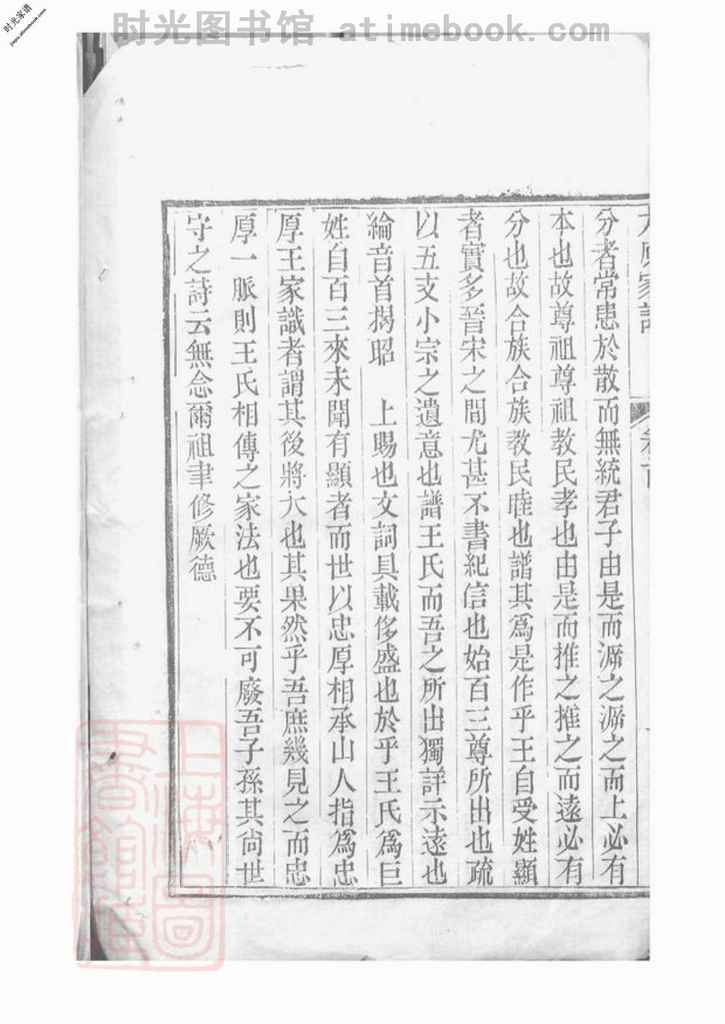 时光图书馆 atimebook.com
时光家谱
分者常患於散而無統君子由是而溯之溯之而上必有
本也故尊祖尊祖教民孝也由是而推之推之而遠必有
分也故合族合族教民睦也譜其爲是作乎王自受姓顯
者實多晉宋之間尤甚不書紀信也始百三尊所出也疏
以五支小宗之遺意也譜王氏而吾之所出獨詳示遠也
綸音首揭昭 上賜也文詞具載侈盛也於乎王氏爲巨
姓自百三來未聞有顯者而世以忠厚相承山人指爲忠
厚王家識者謂其後將大也其果然乎吾庶幾見之而忠
厚一脈則王氏相傳之家法也要不可廢吾子孫其尙世
守之詩云無念爾祖聿修厥德
上海圖書館藏